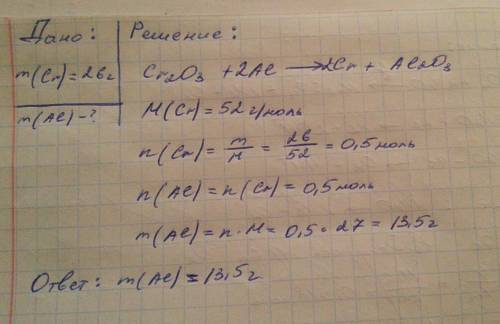 Дано: Решение:
m(Cr)=26г Cr₂O₃ + 2Al → 2Cr + Al₂O₃
m(Al)-? M(Cr)=52 г/моль
n(Cr)= m/M = 26/52 = 0,5 моль
n(Al)=n(Cr)=0,5 моль
m(Al)=n·M=0,5·27=13,5г
Ответ: m(Al)=13,5г